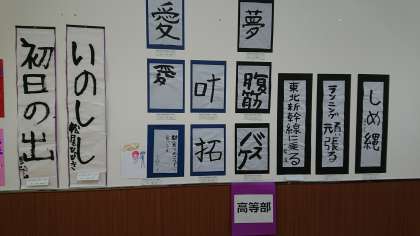 初日の出
いのしし
愛
愛
叶
拓
夢
腹筋
バスケ
東北新幹線に乗る
ランニング頑張る
しめ縄
高等部